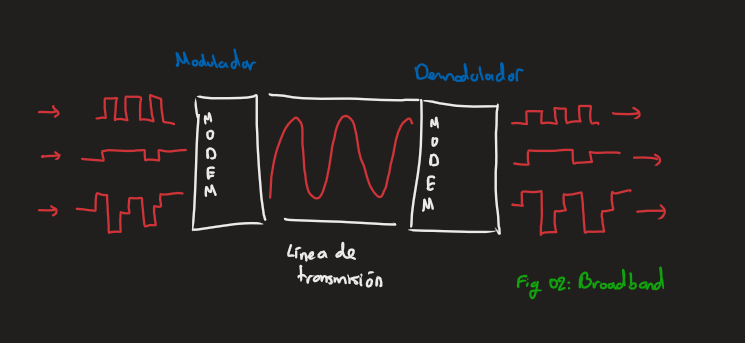 Modulador
Demodulador
MODEM
MODEM
Línea de
transmisión
Fig 02: Broadband